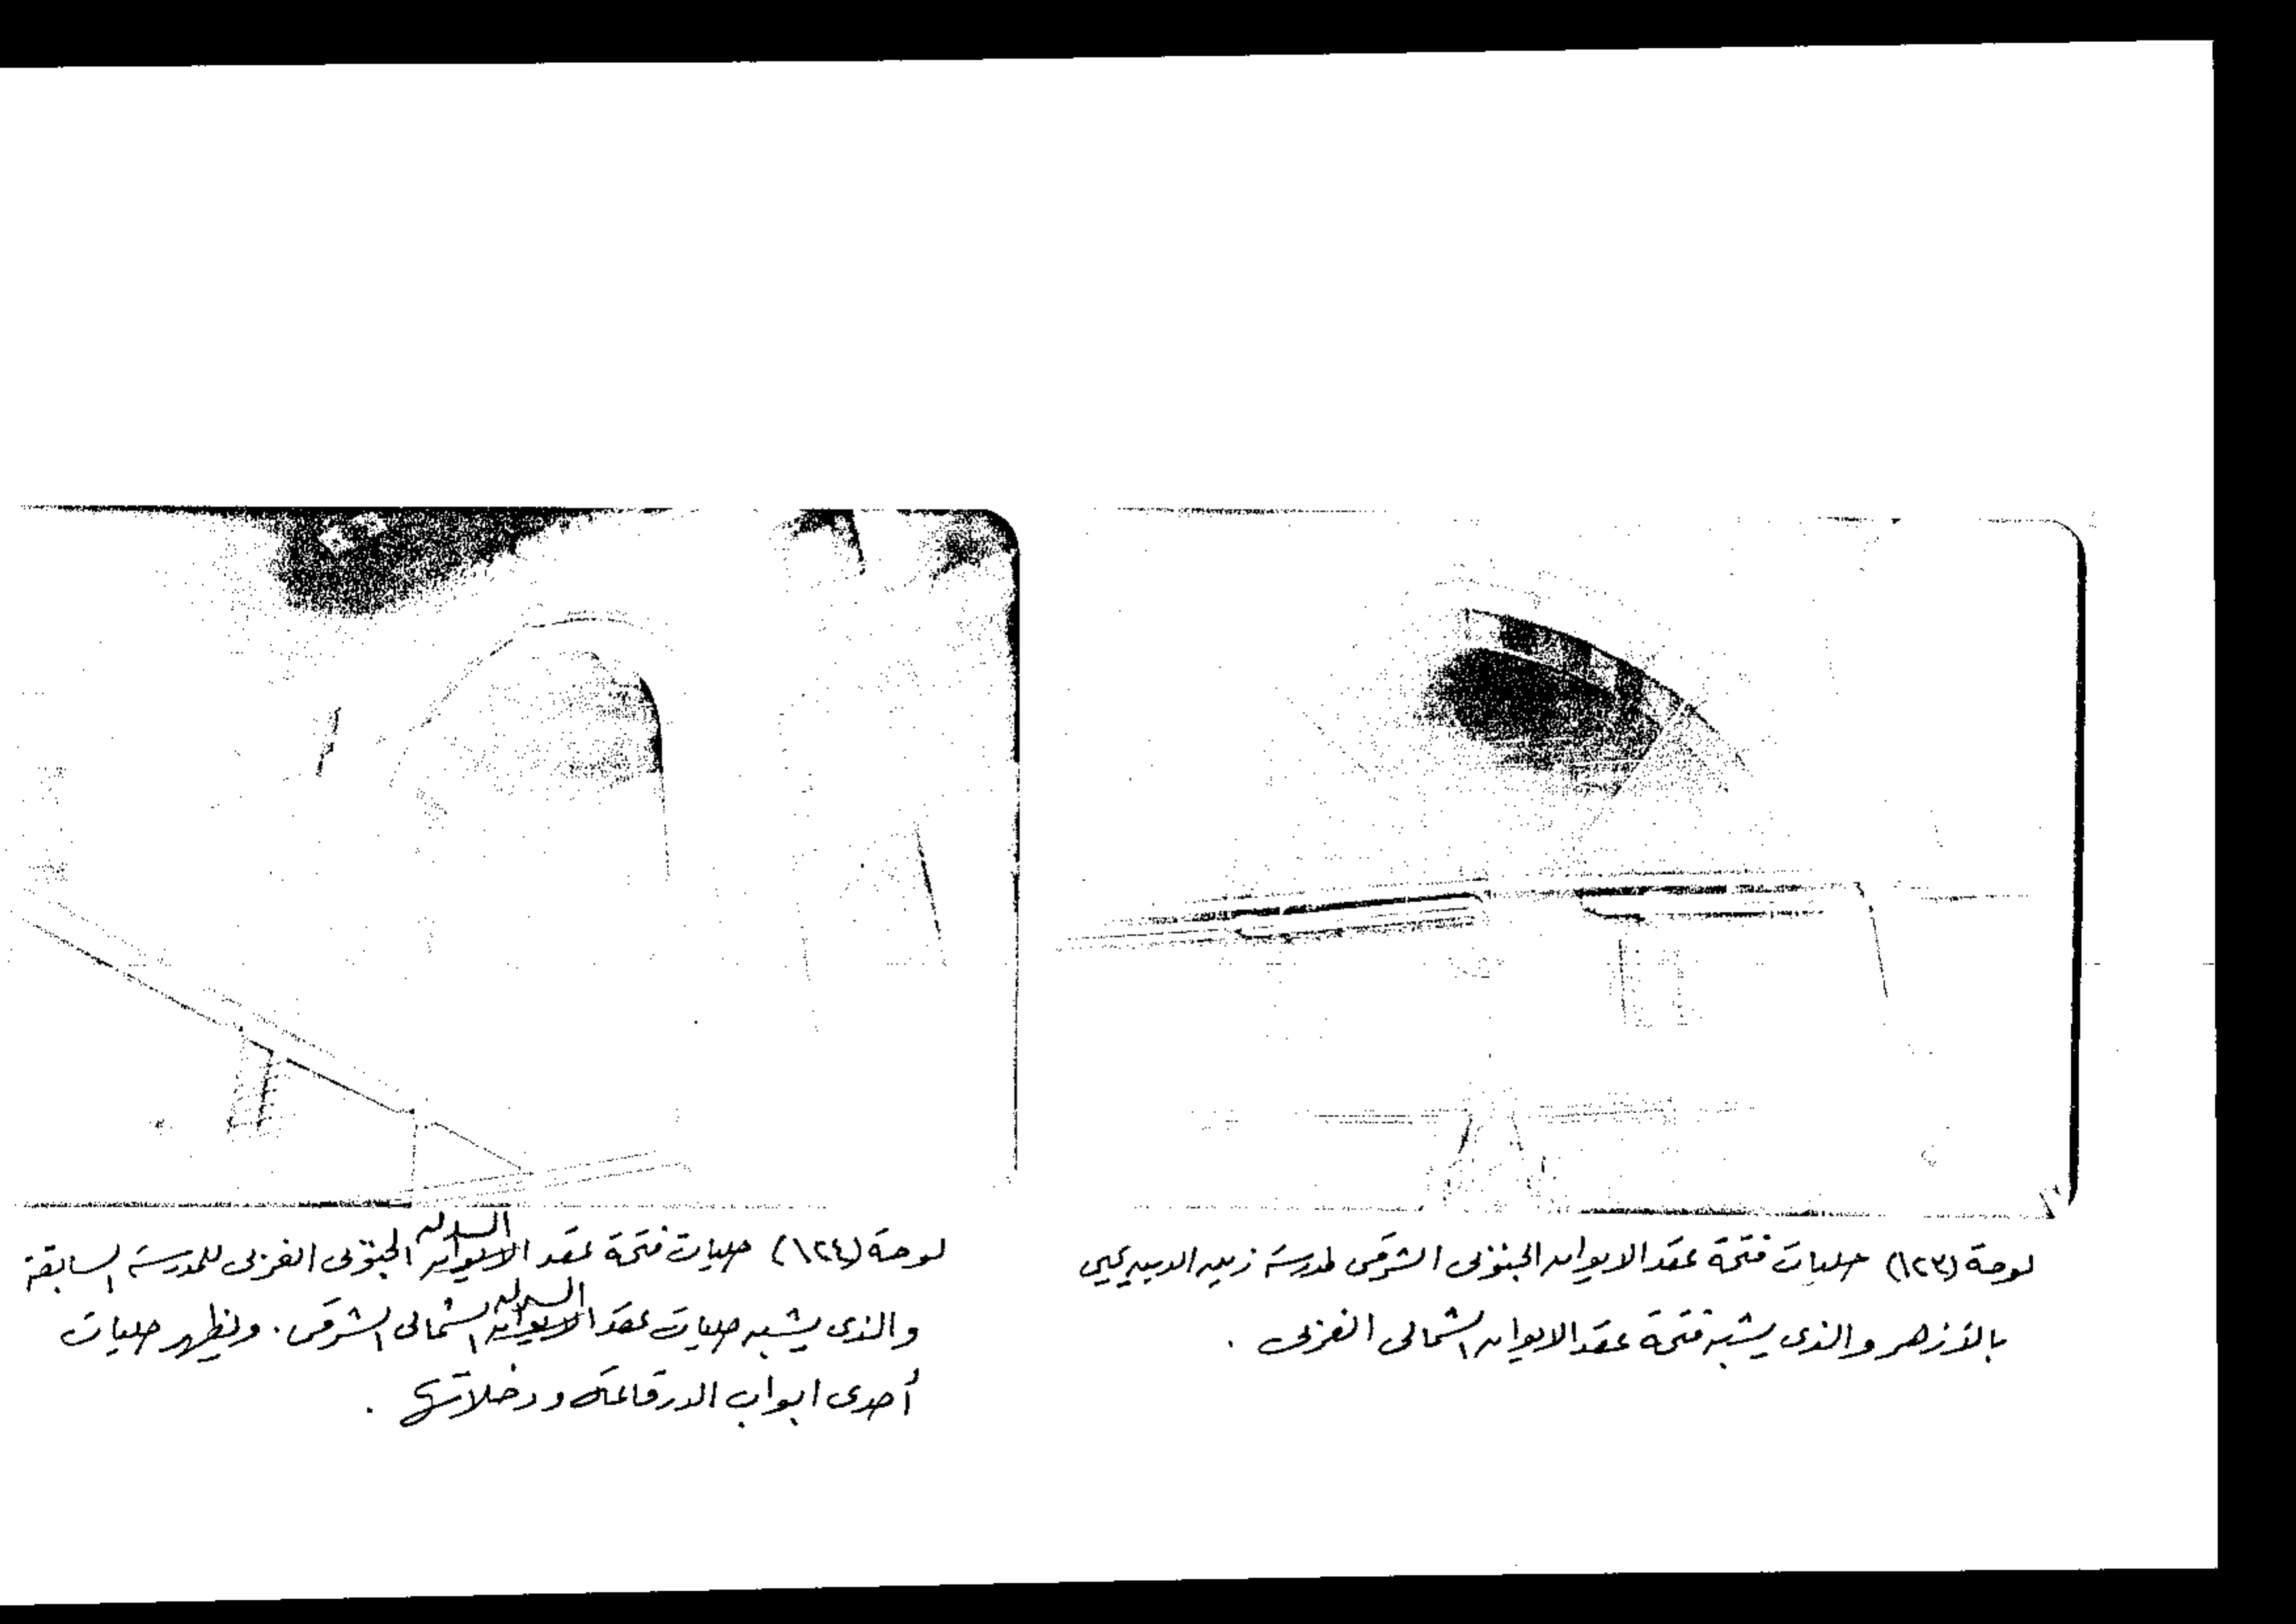 لوحة (١٢٣) حليات فتحة عقد الايوان الجنوبى الشرقى لمدرسة زين الدين يحيى
بالأزهر والذى يشبه فتحة عقد الايوان الشمالى الغربى .
لوحة (١٢٤) حليات فتحة عقد السدله الجنوبى الغربى للمدرسة السابقة
والذى يشبه حليات عقد السدله الشمالى الشرقى . ويظهر حليات
أحدى ابواب الدرقاعه ودخلاتها .